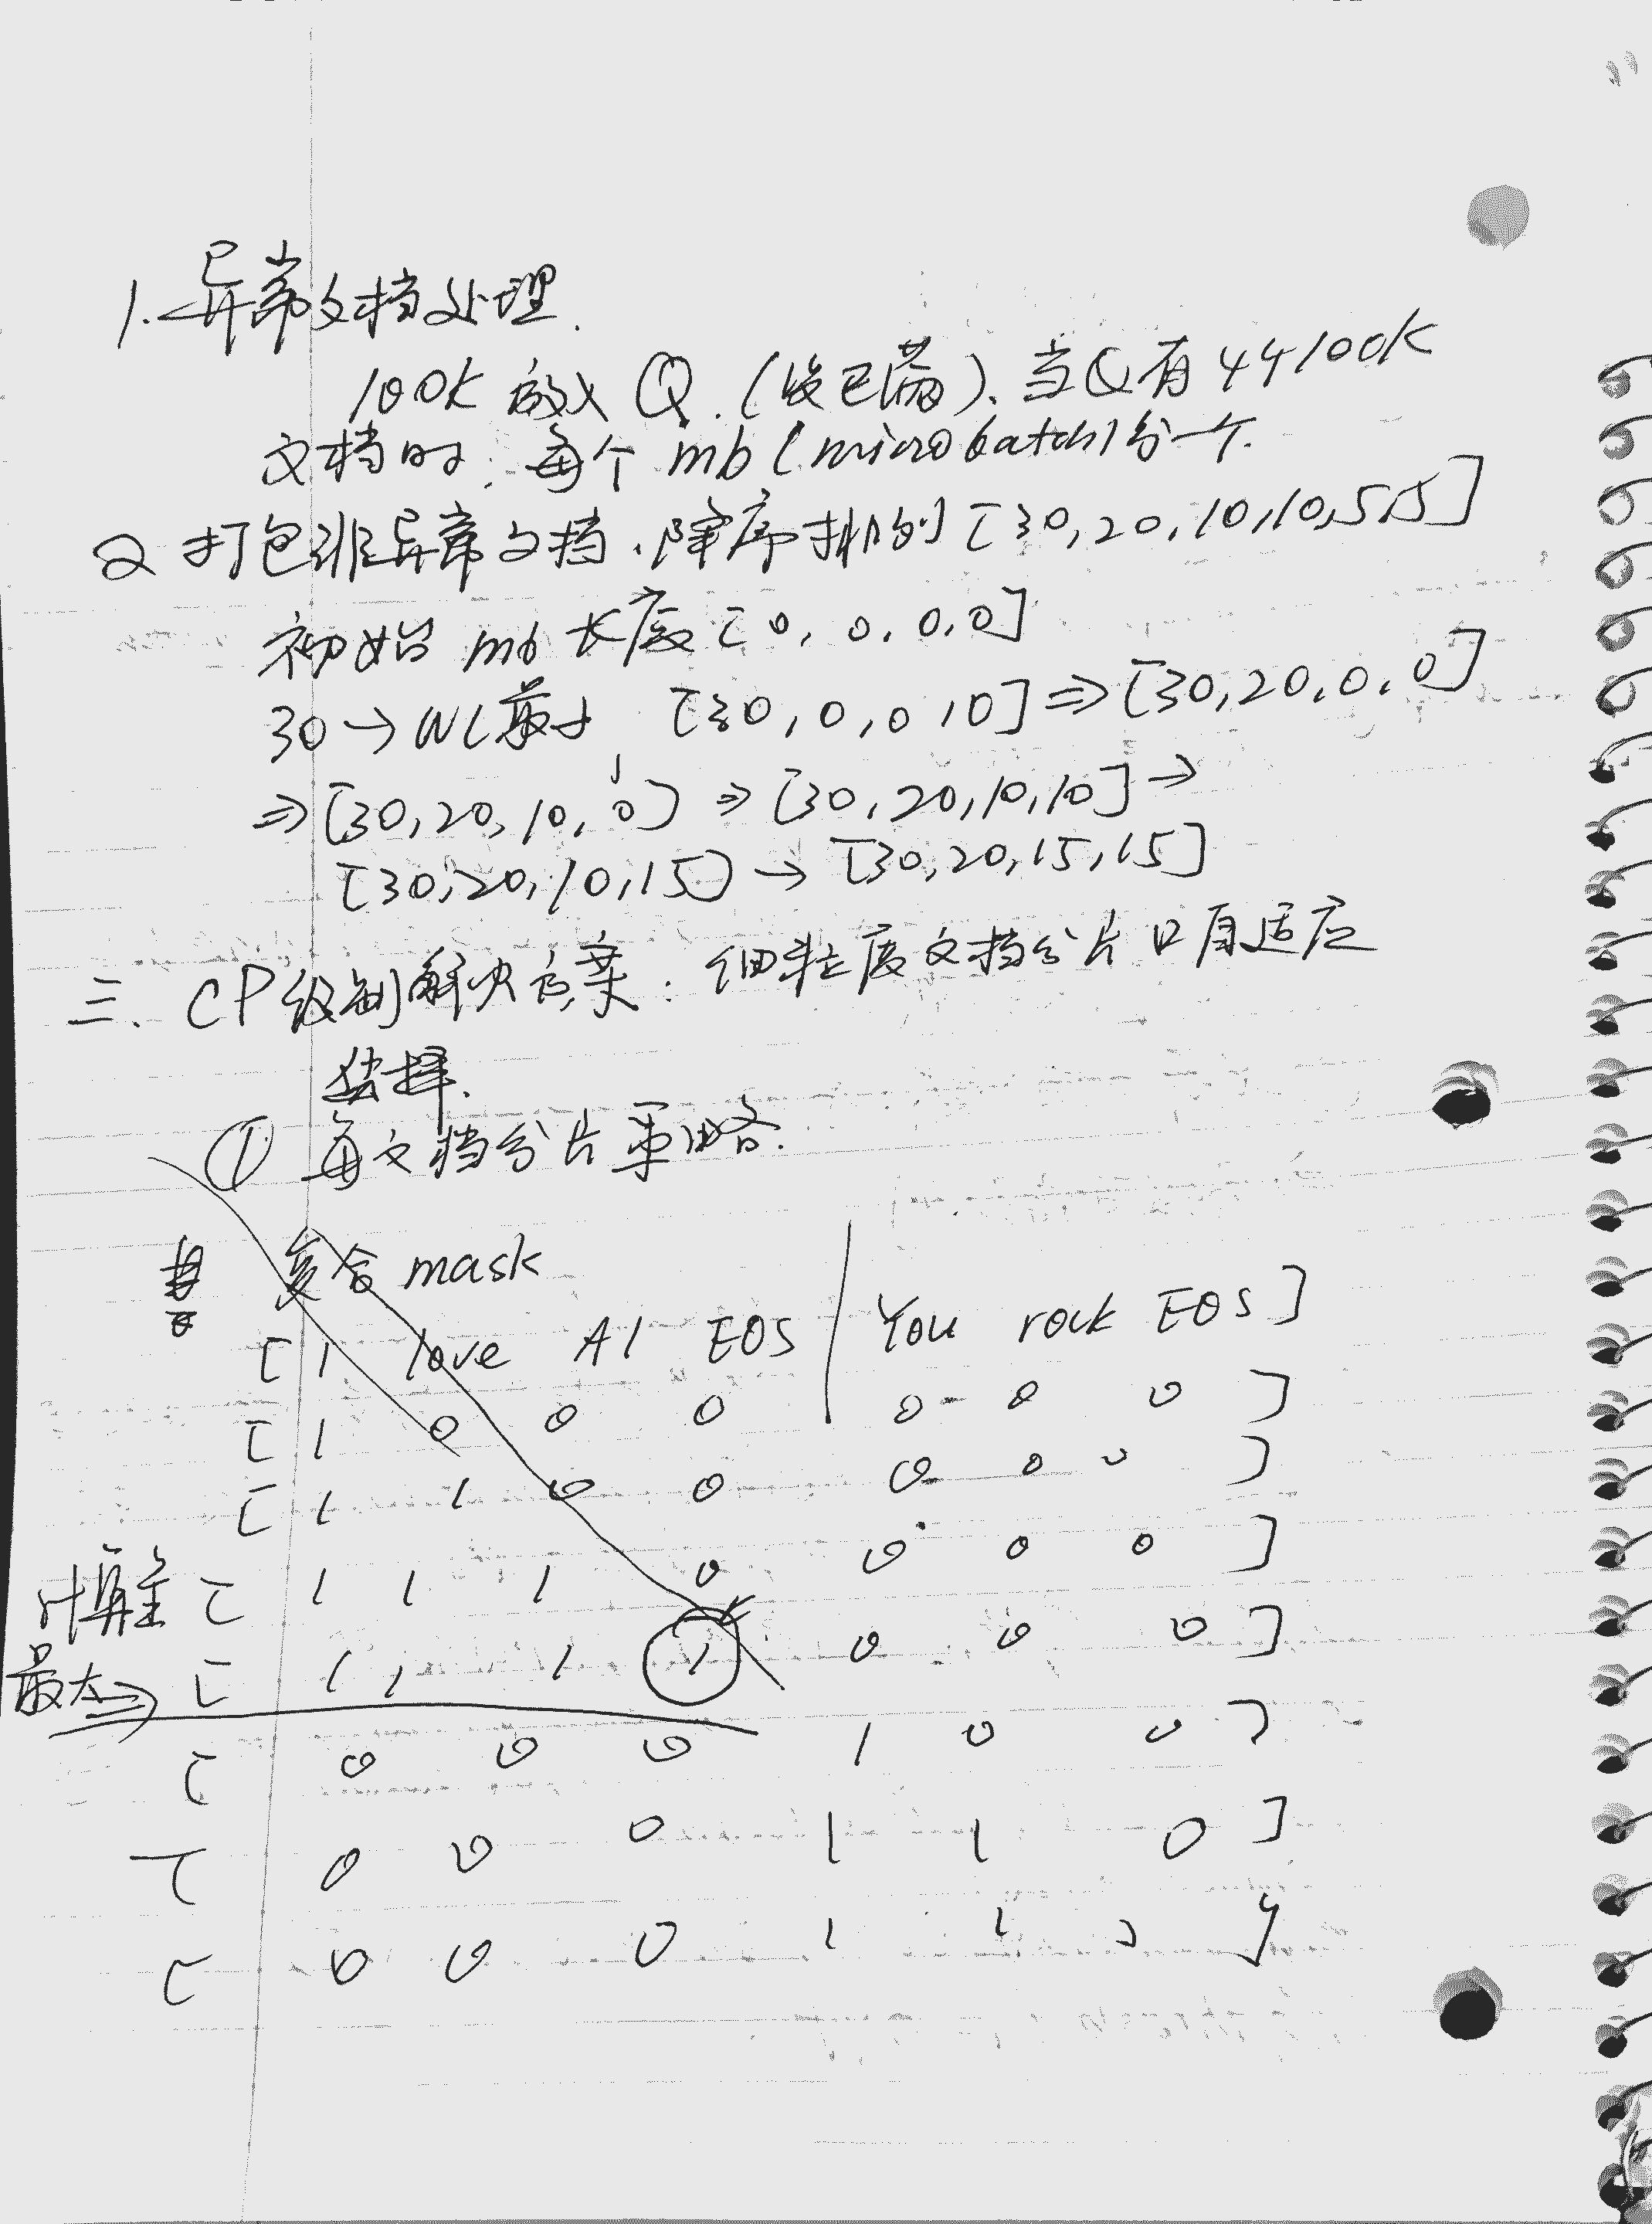 1. 异常文档处理.
100K 放入 Q. (没已满). 当Q有 4个100K
文档时, 每个 mb (microbatch)分一个.
2 打包非异常文档. 降序排列 [30, 20, 10, 10, 5, 5]
初始 mb 长度 [0, 0, 0, 0]
30 → WL最小 [30, 0, 0, 0] ⇒ [30, 20, 0, 0]
⇒ [30, 20, 10, 0] ⇒ [30, 20, 10, 10] →
[30, 20, 10, 15] → [30, 20, 15, 15]
三. CP级别解决方案: 细粒度文档分片 自适应
选择.
① 每文档分片策略.
复合 mask
[I love AI EOS | You rock EOS]
[1 0 0 0 0 0 0]
[1 1 0 0 0 0 0]
计算量 [1 1 1 0 0 0 0]
最大⇒ [1 1 1 1 0 0 0]
[0 0 0 1 0 0]
[0 0 0 1 1 0]
[0 0 0 1 1 1]